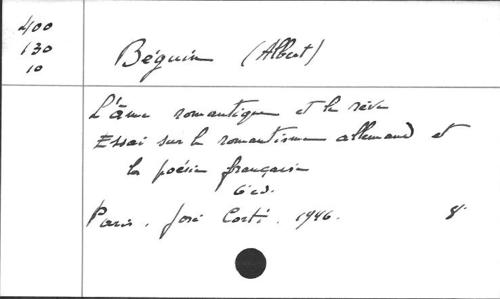 400
130
10
Béguin (Albert)
L'âme romantique et le rêve
Essai sur le romantisme allemand et
la poésie française
6 éd.
Paris. José Corti. 1946. 8°